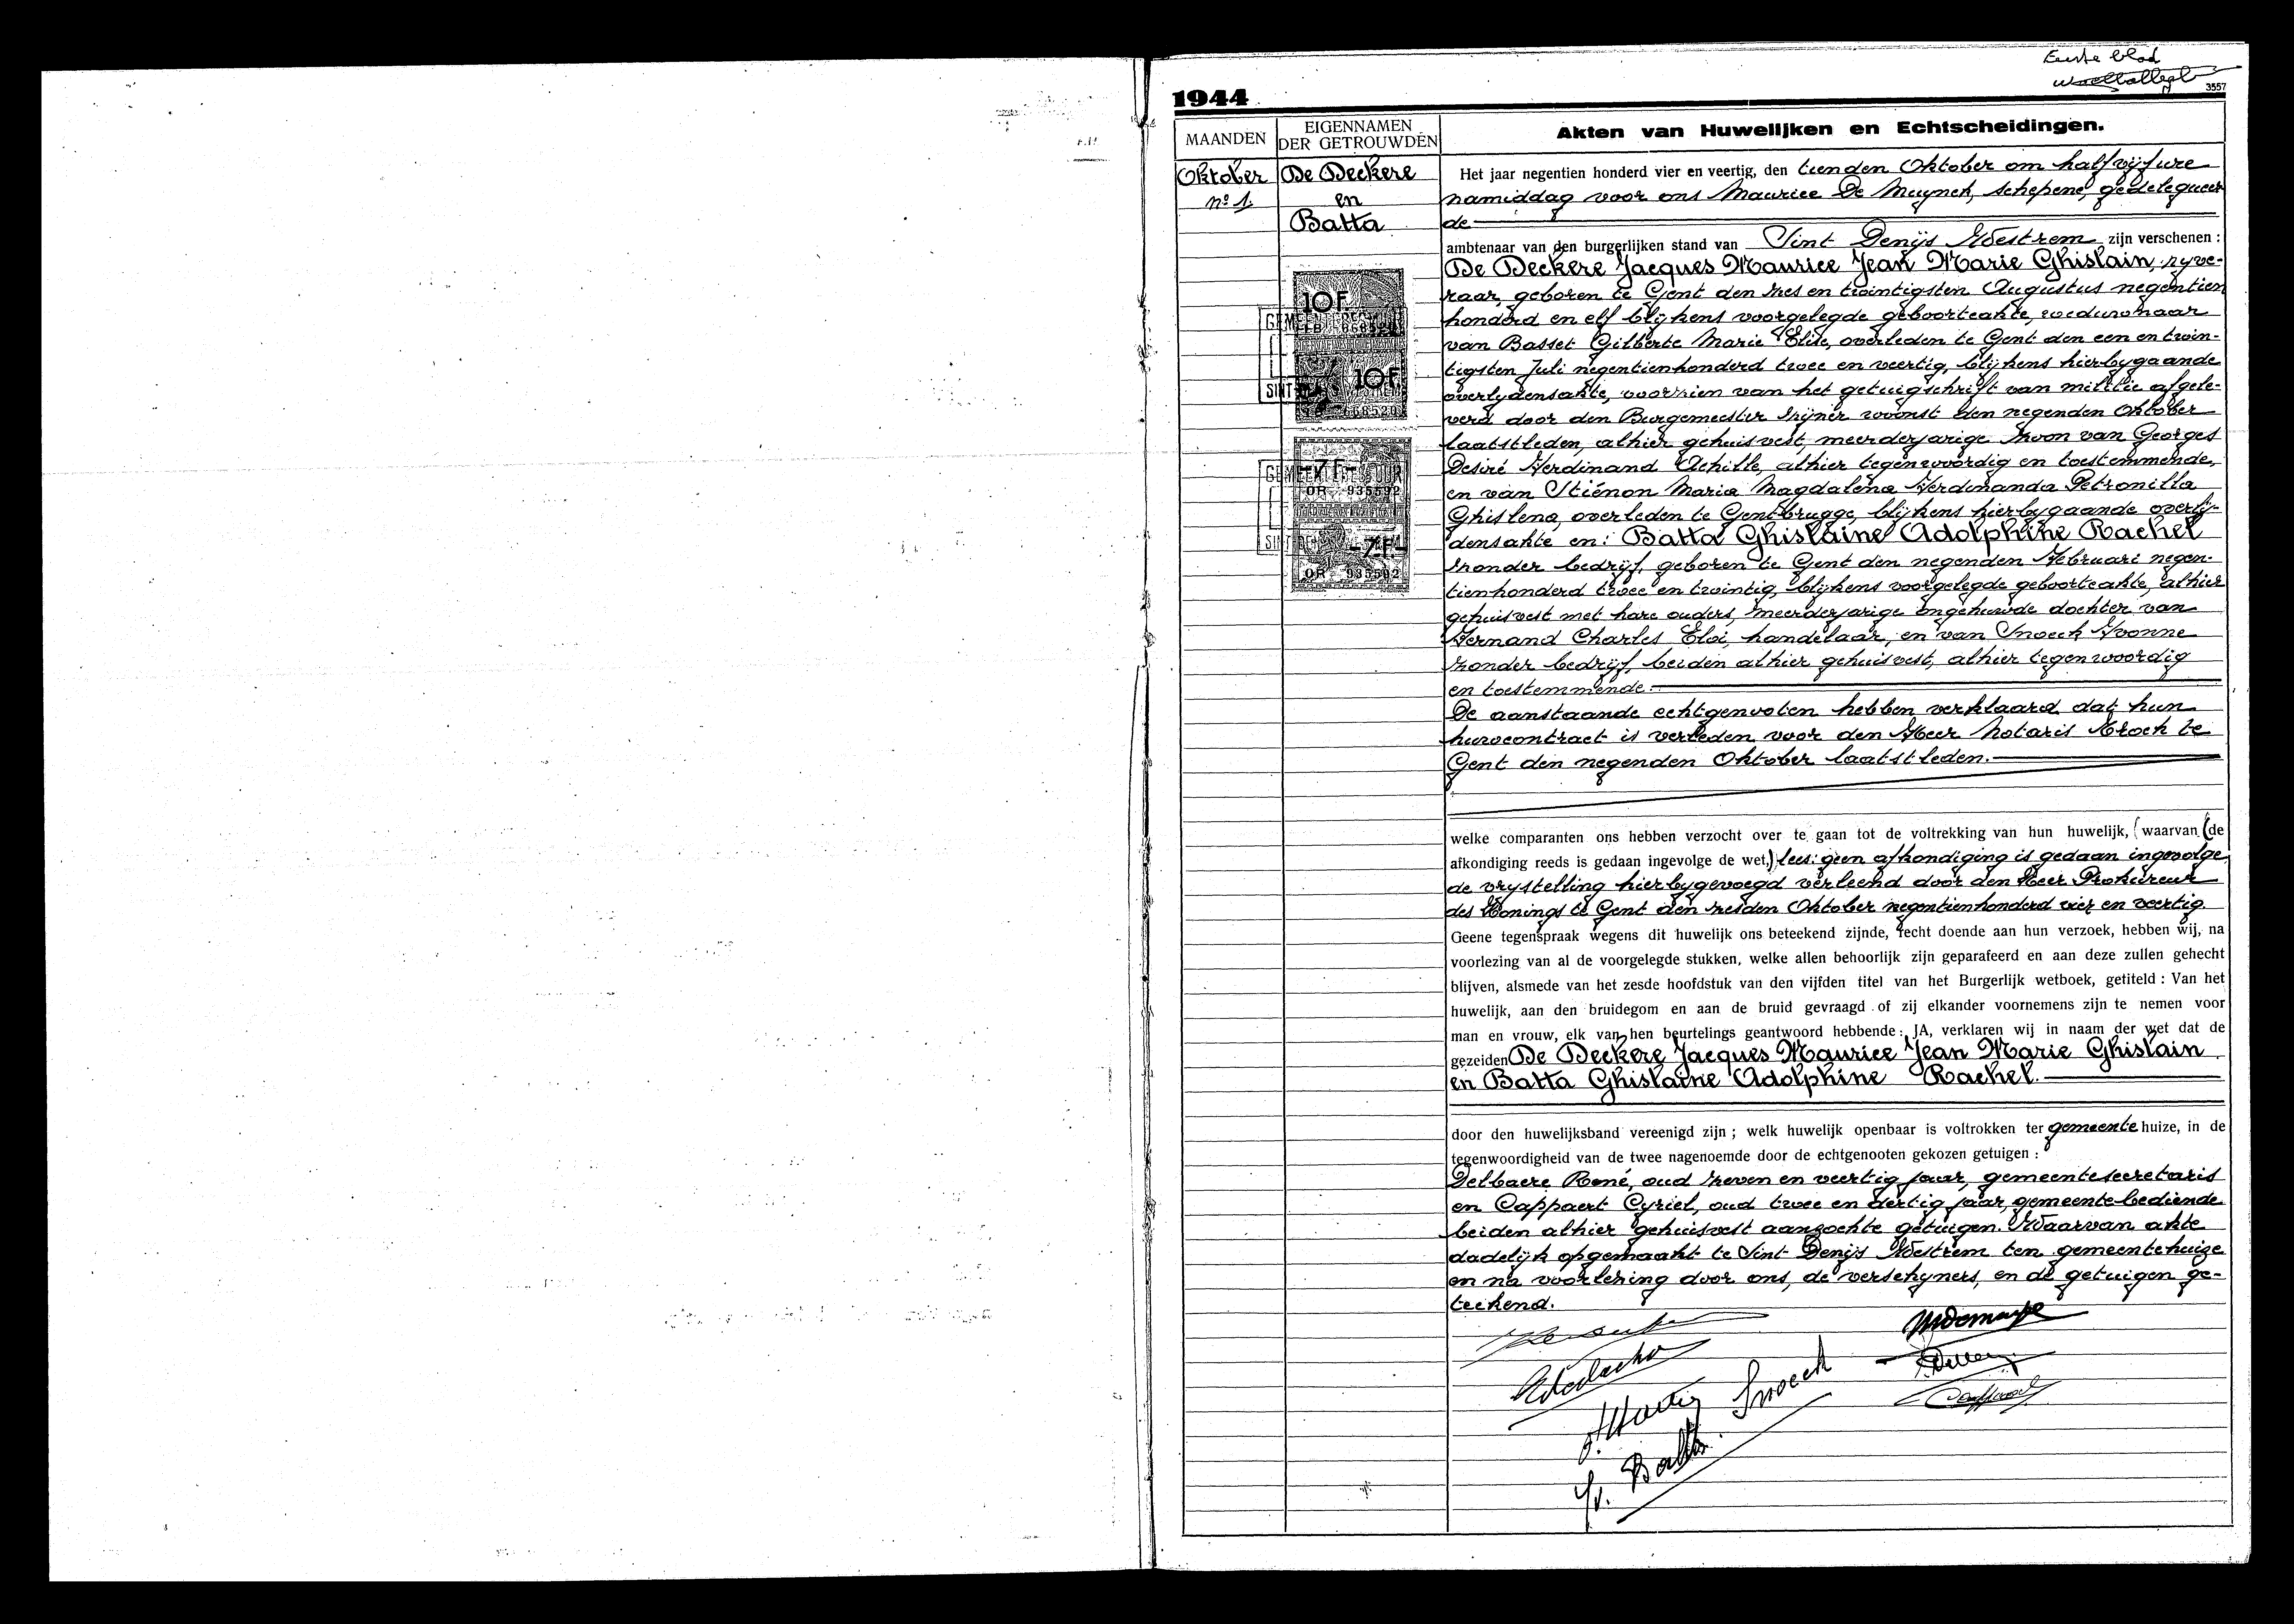 Eerste blad
3557
1944
MAANDEN
EIGENNAMEN
DER GETROUWDEN
Akten van Huwelijken en Echtscheidingen.
Oktober
nº 1.
De Deckere
en
Batta
10F.
10F.
Het jaar negentien honderd vier en veertig, den tienden Oktober om half vijf ure
namiddag voor ons Maurice De Muynck, schepene, gedelegueer
de
ambtenaar van den burgerlijken stand van Sint Denijs Westrem zijn verschenen :
De Deckere Jacques Maurice Jean Marie Ghislain, nyve-
raar, geboren te Gent den zes en twintigsten Augustus negentien
honderd en elf blijkens voorgelegde geboorteakte, weduwnaar
van Basset Gilberte Marie Elise, overleden te Gent den een en twin-
tigsten Juli negentienhonderd twee en veertig, blijkens hierbygaande
overlydensakte, voorzien van het getuigschrift van militie afgele-
verd door den Burgemeester zijner woonst den negenden Oktober
laatstleden, alhier gehuisvest, meerderjarige zoon van Georges
Desiré Ferdinand Achille, alhier tegenwoordig en toestemmende,
en van Stiénon Maria Magdalena Ferdinanda Petronilla
Ghislena, overleden te Gentbrugge, blijkens hierbygaande overlij-
densakte en: Batta Ghislaine Adolphine Rachel
zonder bedrijf, geboren te Gent den negenden Februari negen-
tienhonderd twee en twintig, blijkens voorgelegde geboorteakte, alhier
gehuisvest met hare ouders, meerderjarige ongehuwde dochter van
Fernand Charles Eloi, handelaar, en van Snoeck Yvonne
zonder bedrijf, beiden alhier gehuisvest, alhier tegenwoordig
en toestemmende.
De aanstaande echtgenooten hebben verklaard dat hun
huwcontract is verleden voor den Heer Notaris Kroch te
Gent den negenden Oktober laatstleden.
welke comparanten ons hebben verzocht over te gaan tot de voltrekking van hun huwelijk, (waarvan (de
afkondiging reeds is gedaan ingevolge de wet,) lees: geen afkondiging is gedaan ingevolge
de vrystelling hierbygevoegd verleend door den Heer Prokureur
des Konings te Gent den zesden Oktober negentienhonderd vier en veertig.
Geene tegenspraak wegens dit huwelijk ons beteekend zijnde, recht doende aan hun verzoek, hebben wij, na
voorlezing van al de voorgelegde stukken, welke allen behoorlijk zijn geparafeerd en aan deze zullen gehecht
blijven, alsmede van het zesde hoofdstuk van den vijfden titel van het Burgerlijk wetboek, getiteld : Van het
huwelijk, aan den bruidegom en aan de bruid gevraagd of zij elkander voornemens zijn te nemen voor
man en vrouw, elk van hen beurtelings geantwoord hebbende : JA, verklaren wij in naam der wet dat de
gezeiden De Deckere Jacques Maurice Jean Marie Ghislain
en Batta Ghislaine Adolphine Rachel.
door den huwelijksband vereenigd zijn ; welk huwelijk openbaar is voltrokken ter gemeente huize, in de
tegenwoordigheid van de twee nagenoemde door de echtgenooten gekozen getuigen :
Delbaere René, oud zeven en veertig jaar, gemeentesecretaris
en Cappaert Cyriel, oud twee en dertig jaar, gemeentebediende
beiden alhier gehuisvest aanzochte getuigen. Waarvan akte
dadelijk opgemaakt te Sint Denijs Westrem ten gemeentehuize
en na voorlezing door ons, de verschyners, en de getuigen ge-
teekend.
Snoeck
Batta